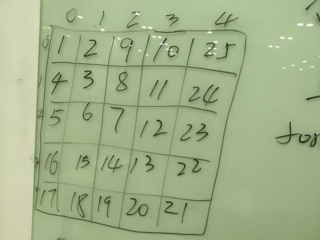 0 1 2 3 4
0 1 2 9 10 25
1 4 3 8 11 24
2 5 6 7 12 23
16 15 14 13 22
17 18 19 20 21
for